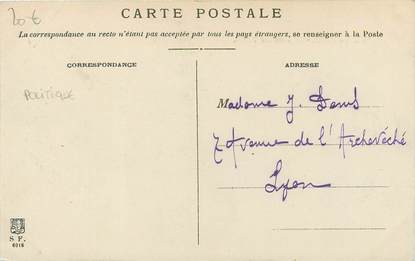 20 €
CARTE POSTALE
La correspondance au recto n'étant pas acceptée par tous les pays étrangers, se renseigner à la Poste
CORRESPONDANCE
ADRESSE
POLITIQUE
Madame J.
7 Avenue de l'Archevêché
Lyon
S. F.